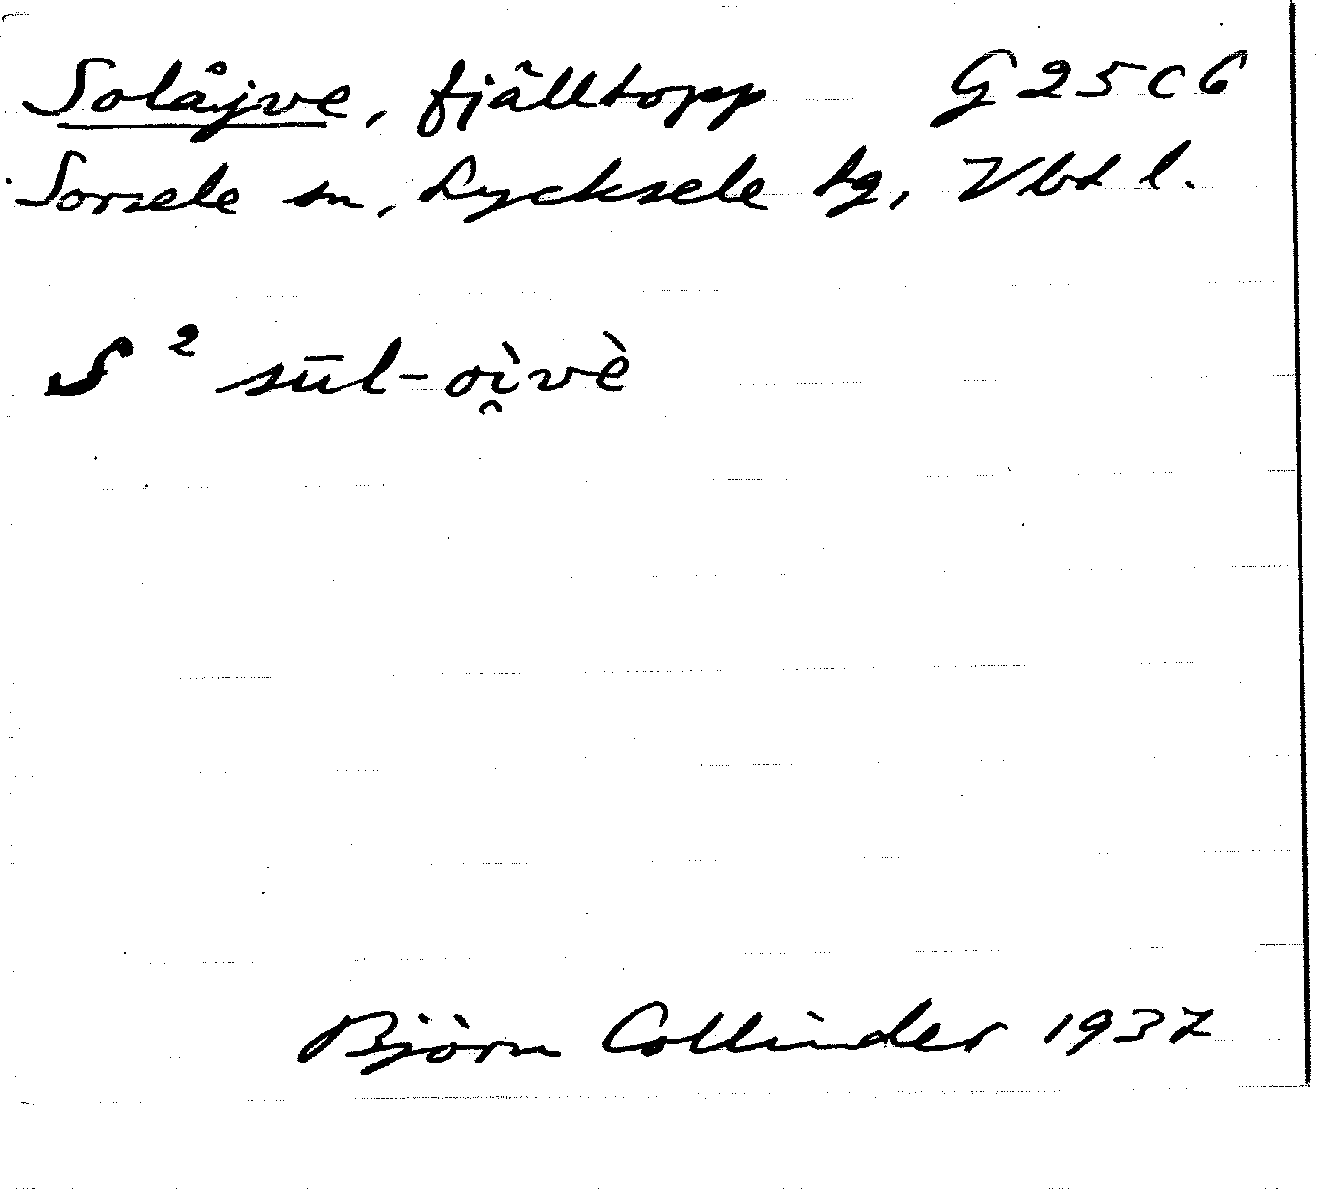 Solåjve, fjälltopp G 25 C 6
Sorsele sn, Lycksele tg, Vbt l.
S ² sūl-oi̯vè
Björn Collinder 1937